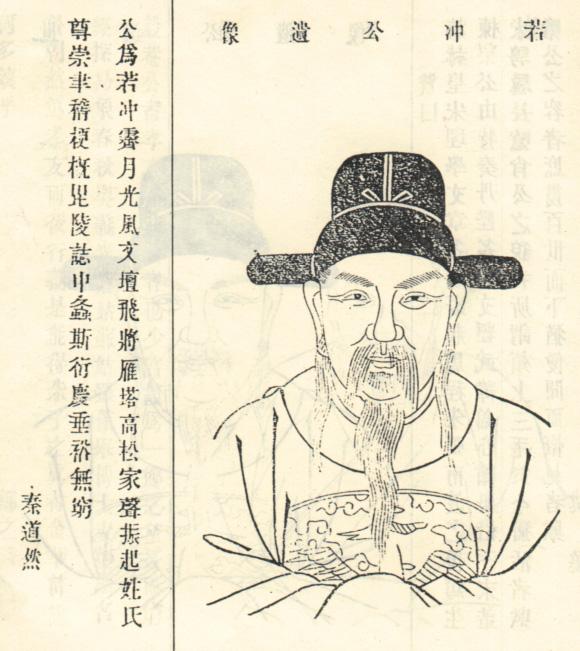 若冲公遺像
公爲若冲霽月光風文壇飛將雁塔高松家聲振起姓氏
尊崇聿稽梗槪毘陵誌中螽斯衍慶垂裕無窮
秦道然